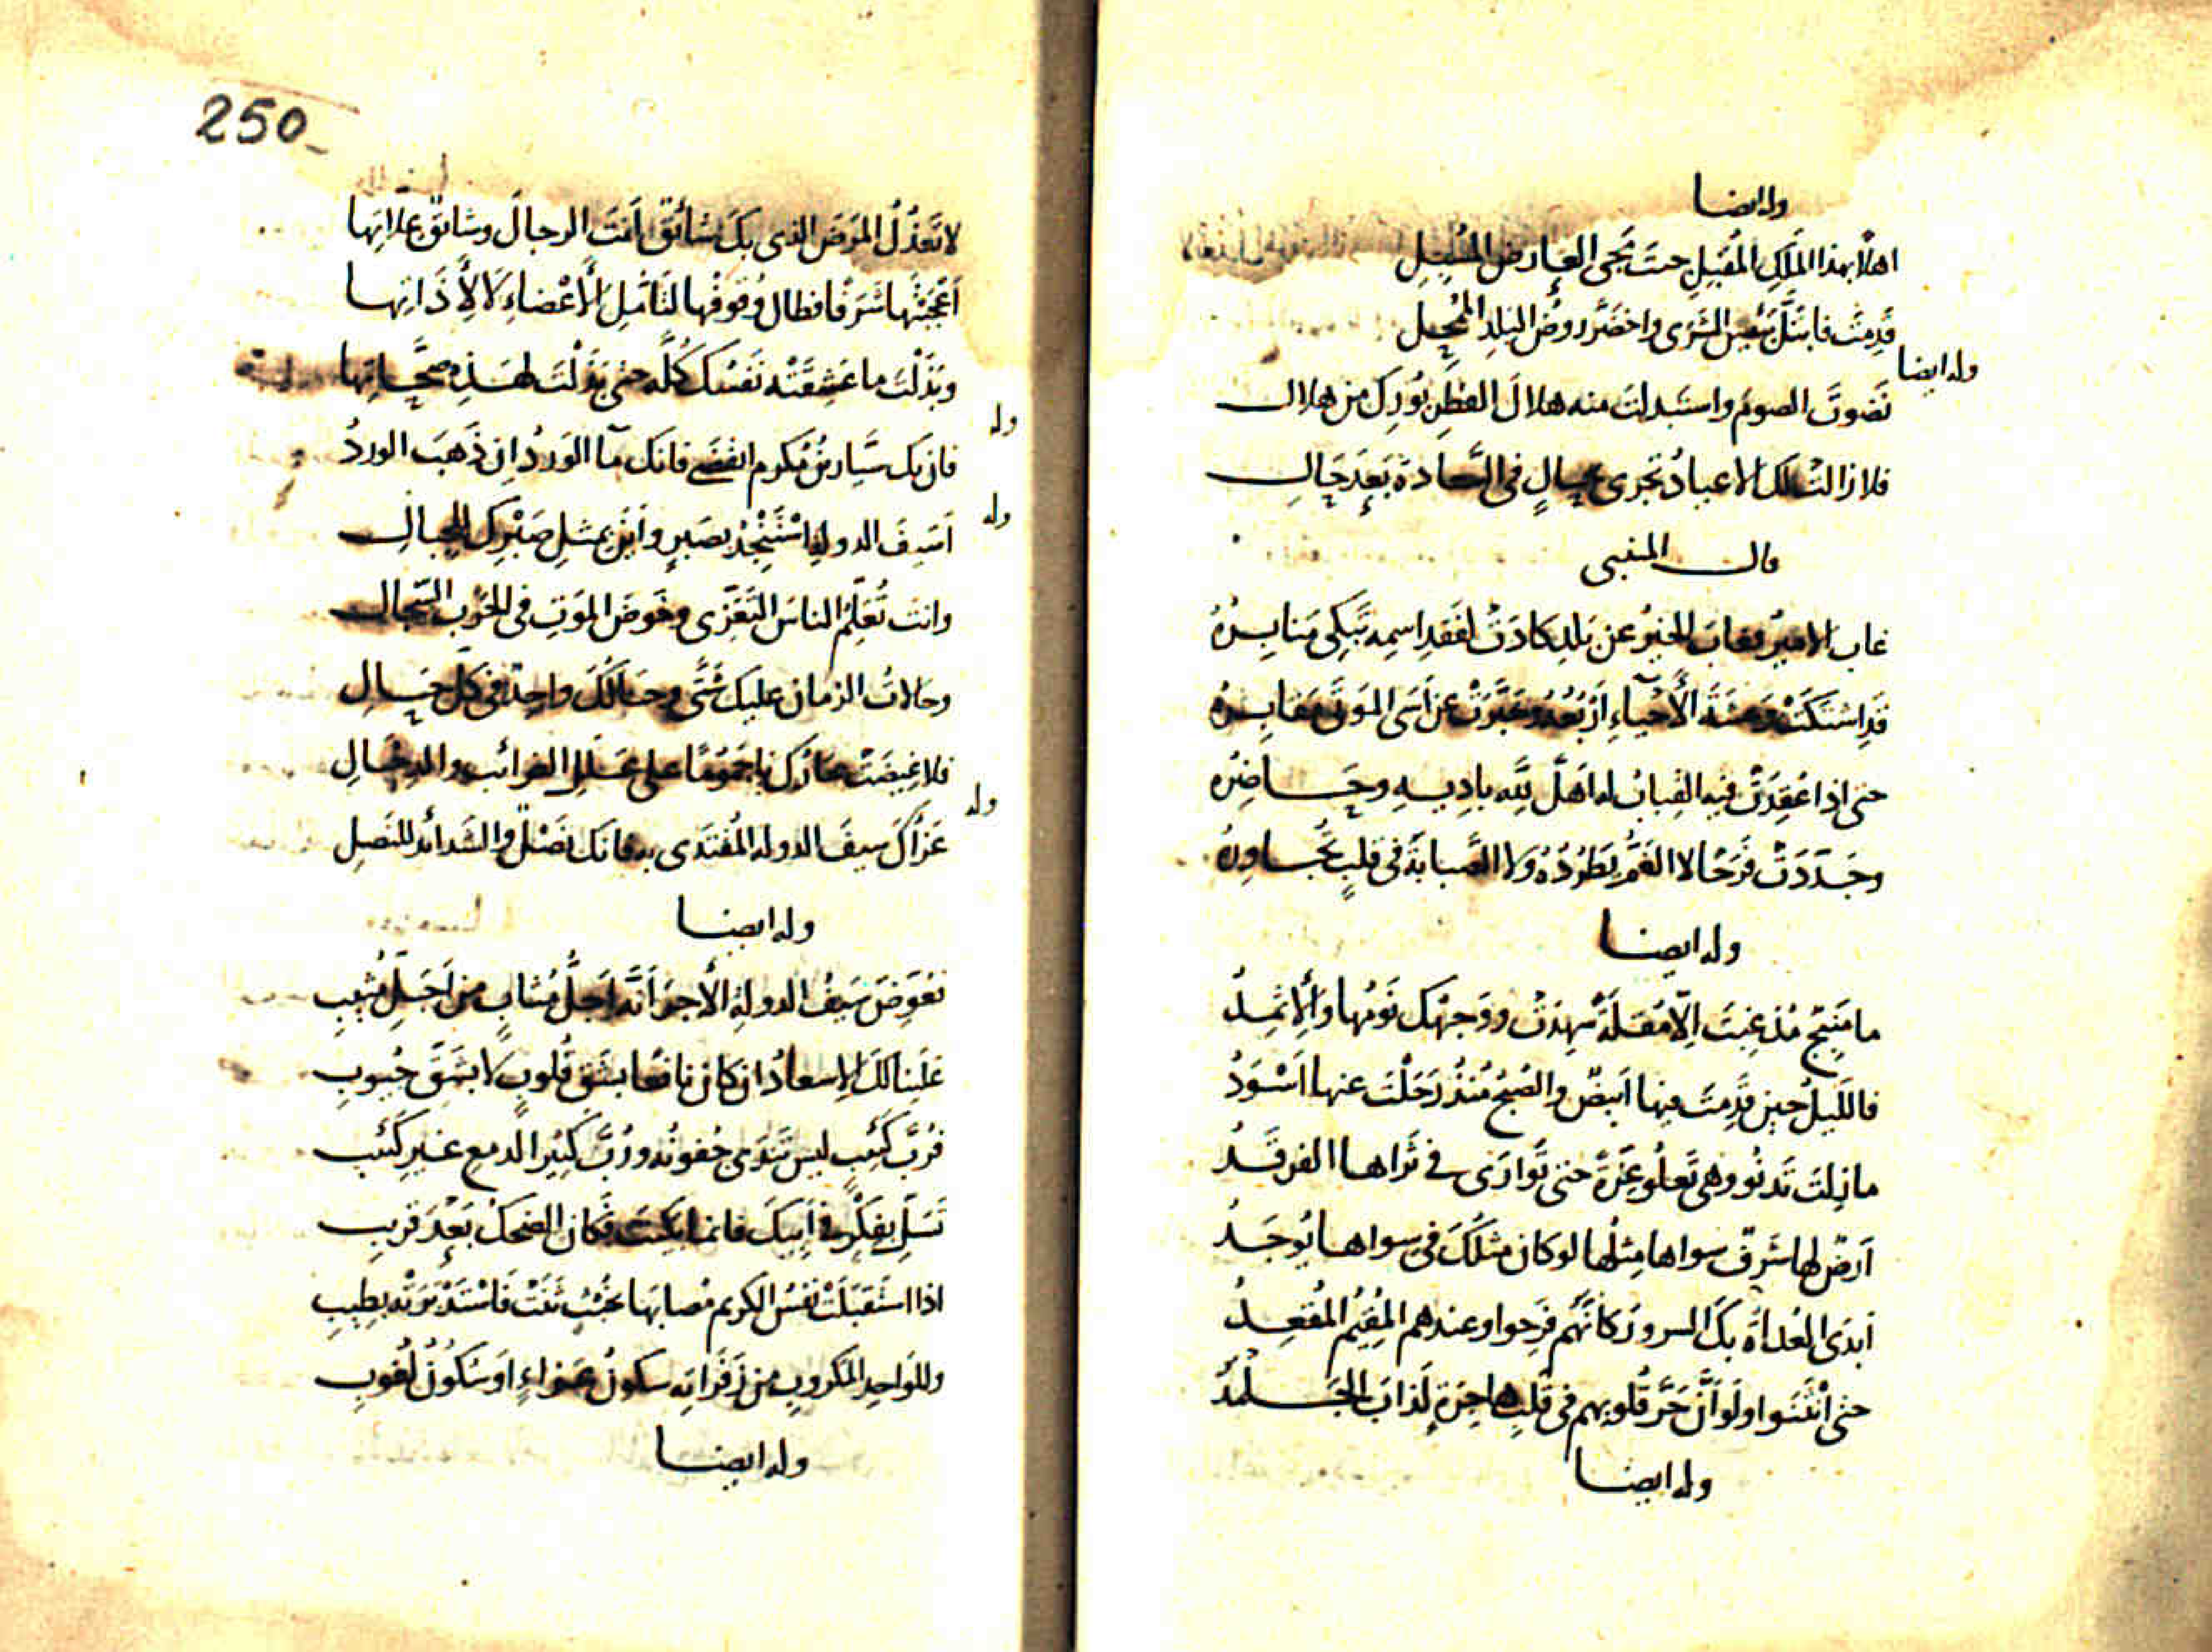 وله ايضا
اهلًا بهذا المَلِكِ المُقبِلِ حتَّ مَجَى العارض المُسبِلِ
قَدِمتَ فابتَلَّ يَبيس الثَرى واخضَرَّ روضُ البَلدِ المُمحِلِ
وله ايضا
نَضَوتَ الصومَ واستَبدلتَ منه هلالَ الفطرِ بُورِكَ من هلالِ
فلا زالت لكَ الاعيادُ تجرى بحالٍ فى السعادة بَعدَ حَالِ
قال المتنبى
غاب الاميرُ فغابَ الخيرُ عن بَلدٍ كادَت لفَقدِ اسمِه تَبكى مَنابِرُهُ
قَدِ اشتَكَت وَحشَةَ الأَحيآءِ اَربُعُه وخَبَّرَت عن اَسَى المَوتَى مَقابِرُهُ
حتى اذا عُقِدَت فيه القِبابُ له اَهَلَّ للَّه بادِيهِ وحَاضِرُه
وجَدَّدَت فَرَحًا لا الغَمُّ يَطرُدُهُ ولا الصَبابَةُ فى قلبٍ تُجاوِرُهُ
وله ايضا
ما مَنبِجٌ مُذ غِبتَ اِلّا مُقلَةٌ سَهِدَت ووَجهُكَ نَومُها والإثمِدُ
فالليلُ حين قَدِمتَ فيها اَبيضٌ والصُبحُ مُنذُ رَحَلتَ عنها اَسوَدُ
ما زِلتَ تَدنُو وهى تَعلُو عِزَّةً حتى تَوارَى فى ثَراها الفرقَدُ
اَرضٌ لها شَرَفٌ سواها مِثلُها لو كان مثلُكَ فى سواها يُوجَدُ
اَبدَى العُداةُ بكَ السرورَ كانَّهُم فَرِحوا وعندهم المُقِيمُ المُقعِدُ
حتى انثَنَوا ولَو اَنَّ حَرَّ قُلوبِهم فى قَلبِ هاجِرَةٍ لَذابَ الجَلمَدُ
وله ايضا
250
لا تَعذُلُ المَرَضَ الذى بكَ شائقٌ اَنتَ الرجالَ وشائقٌ عِلّاتِها
اَعجَبتَها شَرَفًا فطال وُقوفُها لتَأَمُّلِ الأَعضاءِ لا لِأَذَاتِها
وبَذَلتَ ما عَشِقَتهُ نَفسُكَ كُلَّه حتى بَذَلتَ لهَذِهِ صِحَّاتِها
وله
فان يك سَيَّارُ بنُ مُكرمٍ انقضى فانك مآ الوَردِ ان ذَهَبَ الوردُ
وله
اَسَيفَ الدولةِ استَنجِد بصَبرٍ واَينَ بمثلِ صَبرِكَ للجبالِ
وانت تُعَلِّمُ الناسَ التَعَزّى وخَوضَ الموَتِ فى الحَربِ السِّجالِ
وحالاتُ الزمان عليك شَتَّى وحَالُكَ واحِدٌ فى كلِّ حَالِ
فلا غِيضَت بحارُكَ يا جَمُومًا على عَلَلِ الغرائب والدِخَالِ
وله
عَزآكَ سيفَ الدوله المُقتَدَى به فانك نَصلٌ والشدائد للنَصلِ
وله ايضا
تعَوَّضَ سَيفُ الدولةِ الأَجرَ اَنَّه اَجَلُّ مُثابٍ من اَجَلِّ مُثيبِ
عَلَينا لكَ الإسعادُ ان كان نافعًا بشَقِّ قُلوبٍ لا بشَقِّ جُيوبِ
فَرُبَّ كَئيبٍ ليس تَندَى جُفونُه ورُبَّ كَثيرِ الدمع غيرِ كَئيب
تَسَلَّ بفِكرٍ فى اَبيكَ فانما بكَيتَ فكان الضحكُ بَعدَ قريبِ
اذا استَقبَلَت نفسُ الكريم مُصابَها بخُبثٍ ثَنَت فَاستَدبَرَته بطِيبِ
وللواحِدِ المَكروبِ من زَفَراتِه سكونُ عَزاءٍ اَو سُكُونُ لُغوبِ
وله ايضا